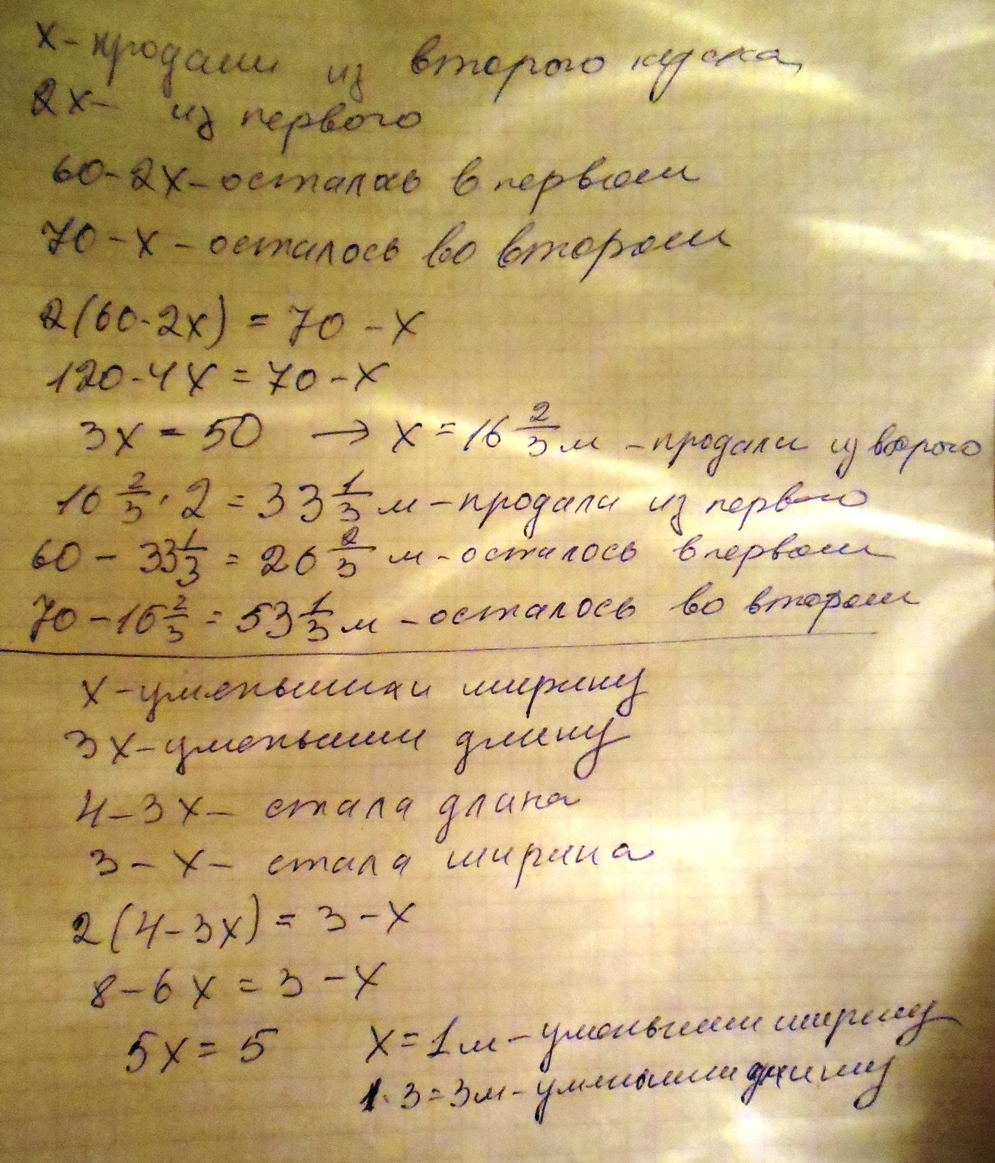 х - продали из второго куска
2х - из первого
60 - 2х - осталось в первом
70 - х - осталось во втором
2(60 - 2х) = 70 - х
120 - 4х = 70 - х
3х = 50 → х = 16 2/3 м - продали из второго
16 2/3 · 2 = 33 1/3 м - продали из первого
60 - 33 1/3 = 26 2/3 м - осталось в первом
70 - 16 2/3 = 53 1/3 м - осталось во втором
х - уменьшили ширину
3х - уменьшили длину
4 - 3х - стала длина
3 - х - стала ширина
2(4 - 3х) = 3 - х
8 - 6х = 3 - х
5х = 5 х = 1 м - уменьшили ширину
1 · 3 = 3 м - уменьшили длину